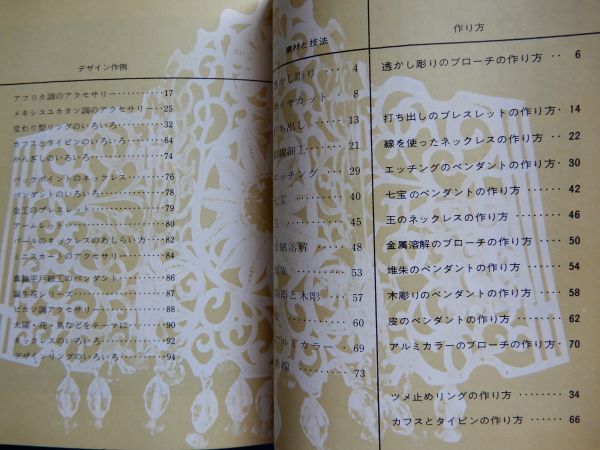 デザイン作例
アフリカ調のアクセサリー ………… 17
メキシコユカタン調のアクセサリー …… 25
変わり型リングのいろいろ ………… 32
カフスとタイピンのいろいろ ………… 64
かんざしのいろいろ ………… 74
バックポイントのネックレス ………… 76
ペンダントのいろいろ ………… 78
金工のブレスレット ………… 79
アームレット ………… 80
パールのネックレスのあしらい方 ……… 82
ミニスカートのアクセサリー ………… 84
真鍮平戸細工のペンダント ………… 86
誕生花シリーズ ………… 87
ピカソ調アクセサリー ………… 88
太陽・花・鳥などをテーマに ………… 90
ネックレスのいろいろ ………… 92
デザインリングのいろいろ ………… 94
素材と技法
透かし彫り …… 4
ダイヤカット …… 8
打ち出し …… 13
線細工 …… 21
エッチング …… 29
七宝 …… 40
玉 …… 45
金属溶解 …… 48
堆朱 …… 53
と木彫 …… 57
皮 …… 60
アルミカラー …… 69
線 …… 73
作り方
透かし彫りのブローチの作り方 ‥ 6
打ち出しのブレスレットの作り方 … 14
線を使ったネックレスの作り方 … 22
エッチングのペンダントの作り方 ‥ 30
七宝のペンダントの作り方 …… 42
玉のネックレスの作り方 …… 46
金属溶解のブローチの作り方 …… 50
堆朱のペンダントの作り方 …… 54
木彫りのペンダントの作り方 …… 58
皮のペンダントの作り方 …… 62
アルミカラーのブローチの作り方 ‥ 70
ツメ止めリングの作り方 ……… 34
カフスとタイピンの作り方 ……… 66